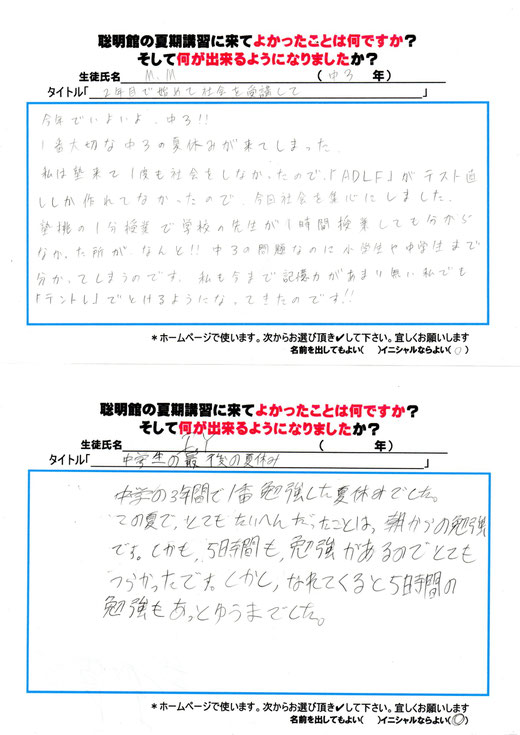 聡明館の夏期講習に来てよかったことは何ですか?
そして何が出来るようになりましたか?
生徒氏名 M.M (中3 年)
タイトル「2年目で始めて社会を受講して」
今年でいよいよ、中3!!
1番大切な中3の夏休みが来てしまった。
私は塾来て1度も社会をしなかったので、「ADLF」がテスト直
ししか作れてなかったので、今回社会を中心にしました。
塾機の1分授業で学校の先生が1時間授業しても分から
なかった所が、なんと!!中3の問題なのに小学生や中学生まで
分かってしまうのです。私も今まで記憶力があまり無い私でも
「テントレ」でとけるようになってきたのです!!
*ホームページで使います。次からお選び頂き✔して下さい。宜しくお願いします
名前を出してもよい( )イニシャルならよい(○)
聡明館の夏期講習に来てよかったことは何ですか?
そして何が出来るようになりましたか?
生徒氏名 I.Y ( 年)
タイトル「中学生の最後の夏休み」
中学の3年間で1番勉強した夏休みでした。
この夏で、とてもたいへんだったことは、朝からの勉強
です。しかも、5時間も、勉強があるのでとても
つらかったです。しかし、なれてくると5時間の
勉強もあっとゆうまでした。
*ホームページで使います。次からお選び頂き✔して下さい。宜しくお願いします
名前を出してもよい( )イニシャルならよい(○)